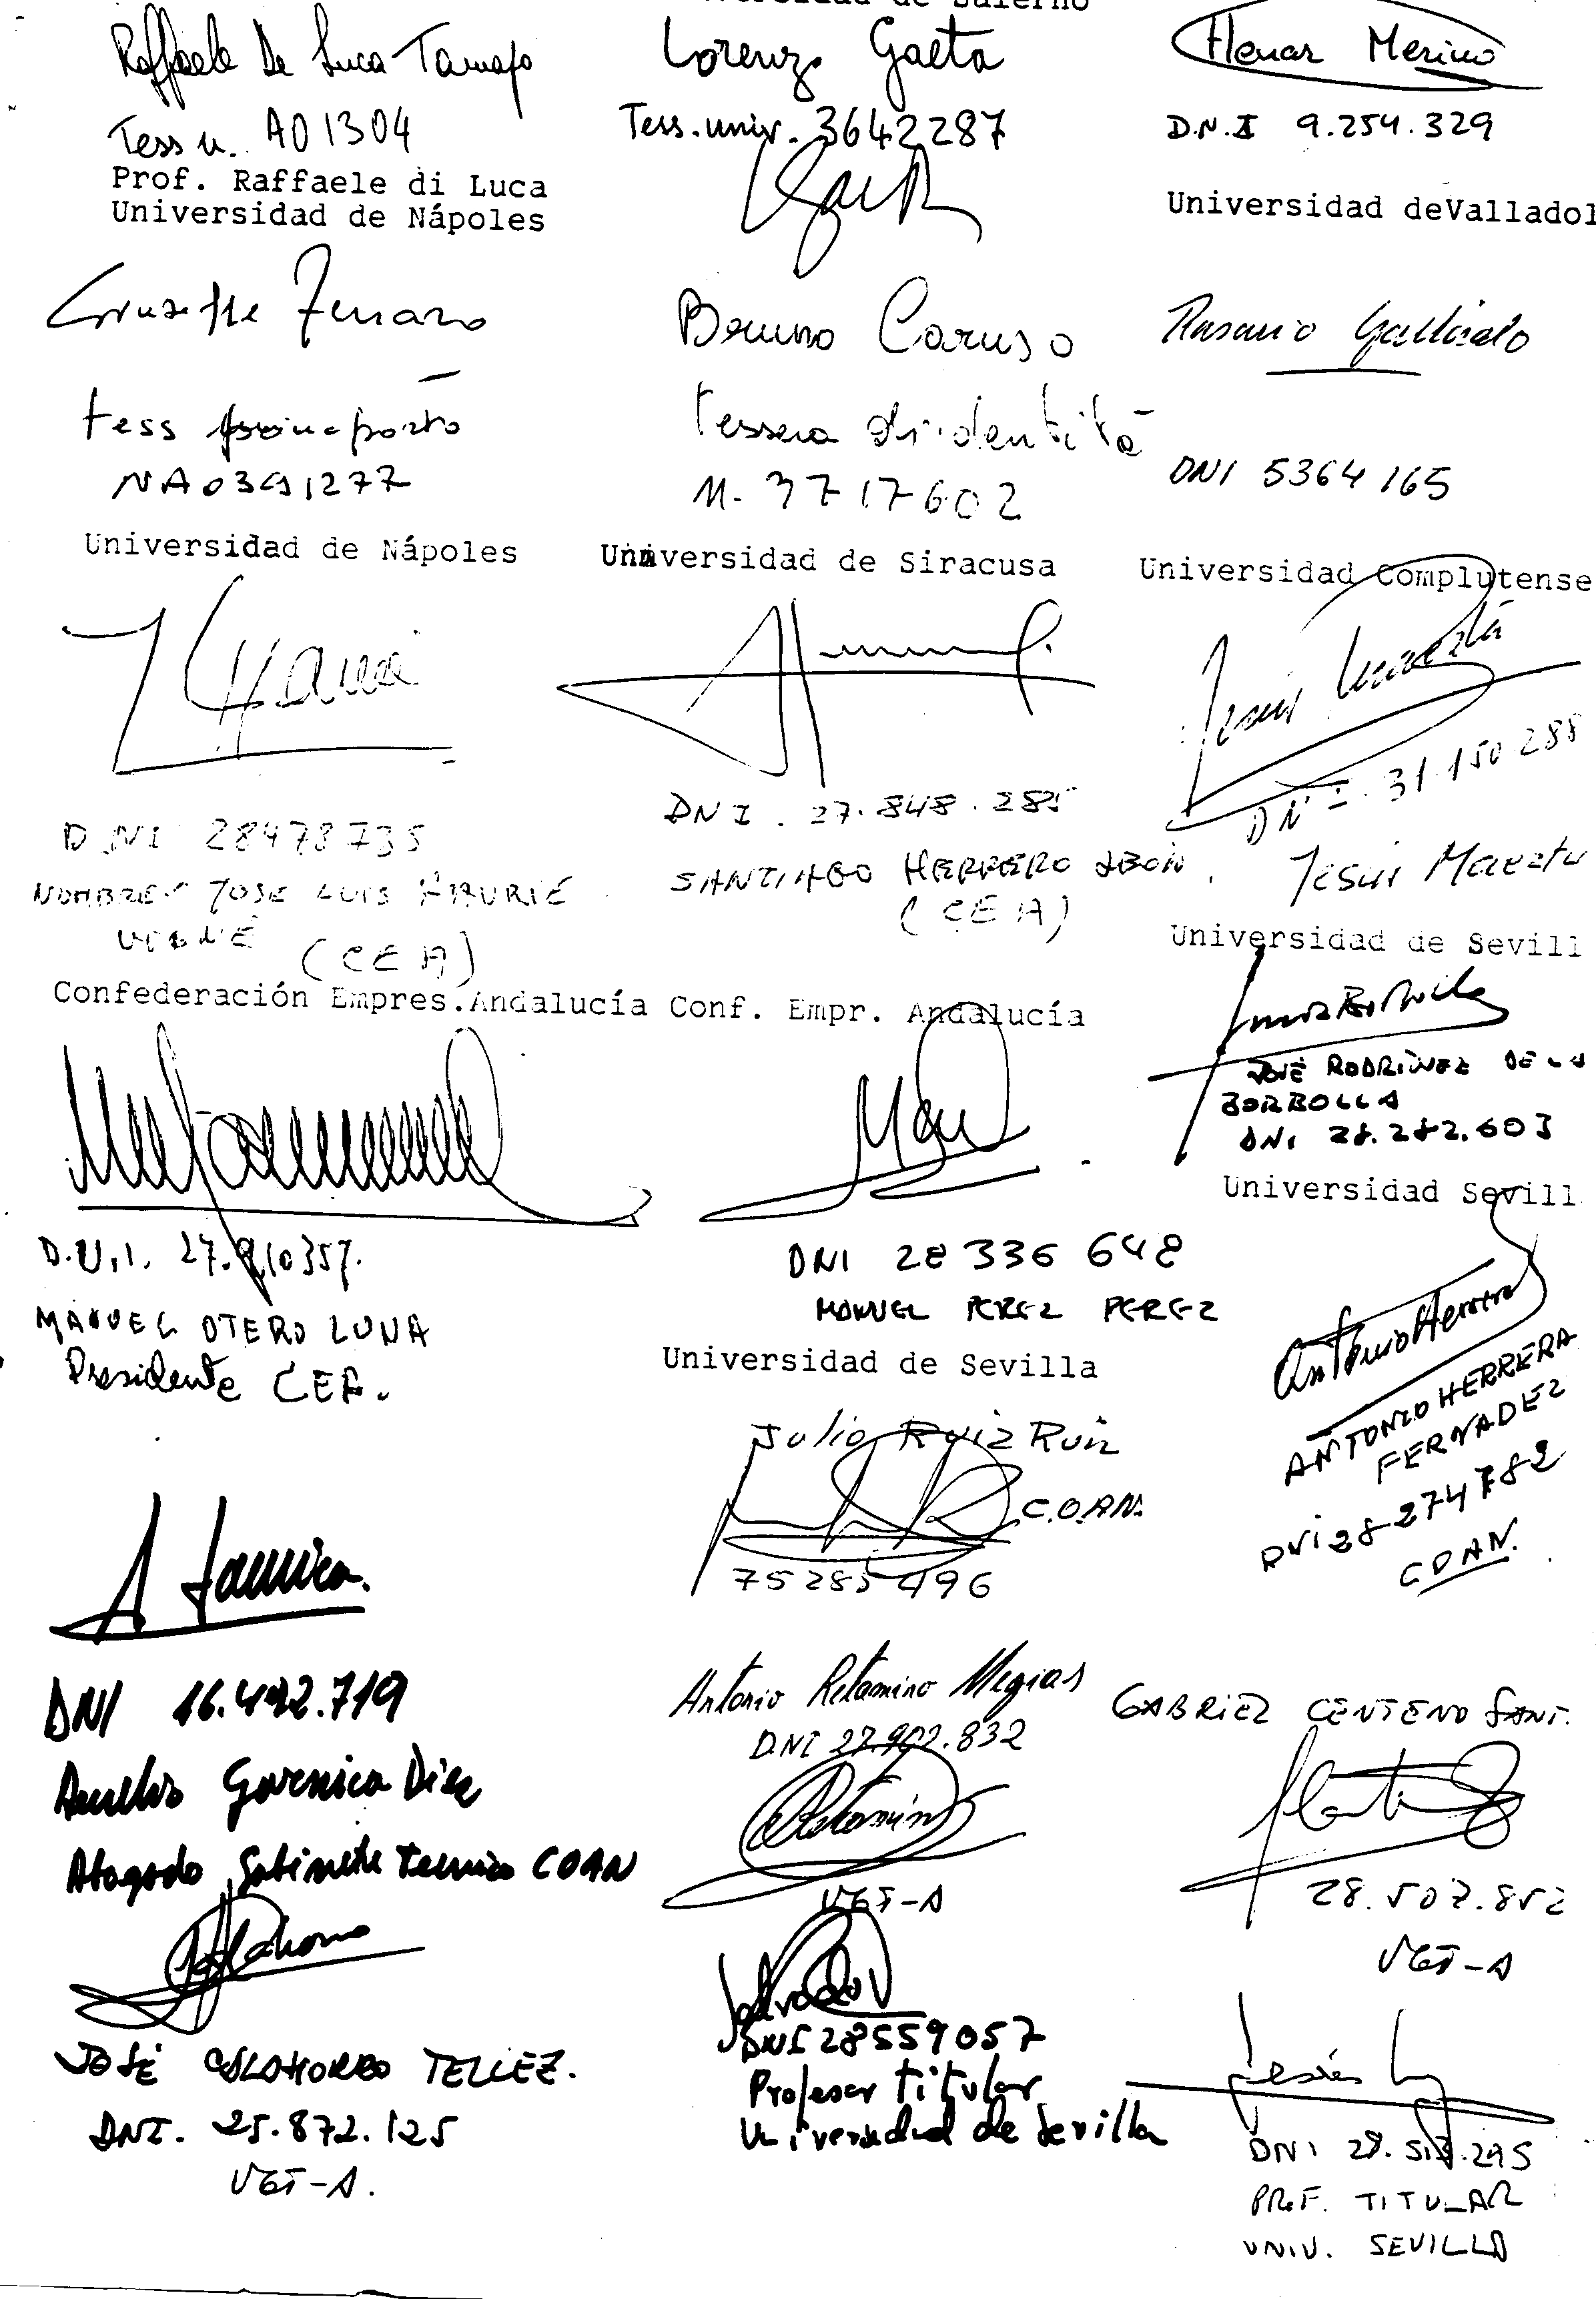 de Salerno
Raffaele De Luca Tamajo
Tess n. A01304
Prof. Raffaele di Luca
Universidad de Nápoles
Lorenzo Gaeta
Tess. univ. 3642287
Henar Merino
D.N.I 9.254.329
Universidad deValladol
Giuseppe Ferraro
tess
NA0391277
Universidad de Nápoles
Bruno Caruso
Tessera di identità
N. 3717602
Universidad de Siracusa
Rosario Gallardo
DNI 5364165
Universidad Complutense
DNI 28478735
NOMBRE JOSE LUIS
(CEA)
Confederación Empres.Andalucía
DNI. 27.848.285
SANTIAGO HERRERO LEON
(CEA)
Conf. Empr. Andalucía
Jesús Maeztu
DNI. 31.150.288
Jesús Maeztu
Universidad de Sevill
JOSÉ RODRÍGUEZ DE LA
BORBOLLA
DNI 28.282.603
Universidad Sevill
D.N.I. 27.910357.
MANUEL OTERO LUNA
Presidente CEA.
DNI 28 336 648
MANUEL PEREZ PEREZ
Universidad de Sevilla
Antonio Herrera
ANTONIO HERRERA
FERNADEZ
DNI 28274782
COAN.
Julio Ruiz Ruiz
C.O.AN.
75285496
A Garnica.
DNI 16.492.719
Aurelio Garnica Diez
Abogado Gabinete Tecnico COAN
Antonio Retamino Megias
DNI 27.902.832
Retamino
UGT-A
GABRIEL CENTENO SANT.
28.507.852
UGT-A
JOSÉ CALAHORRO TELLEZ.
DNI. 25.872.125
UGT-A.
Salvador
DNI 28559057
Profesor Titular
Universidad de Sevilla
Jesús
DNI 28.513.295
PROF. TITULAR
UNIV. SEVILLA